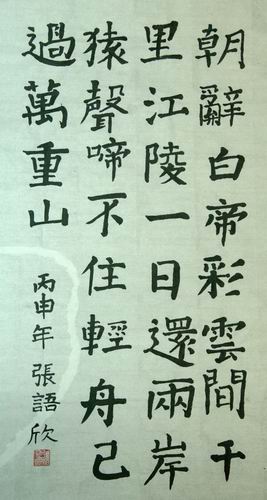 朝辭白帝彩雲間千
里江陵一日還兩岸
猿聲啼不住輕舟已
過萬重山
丙申年張語欣